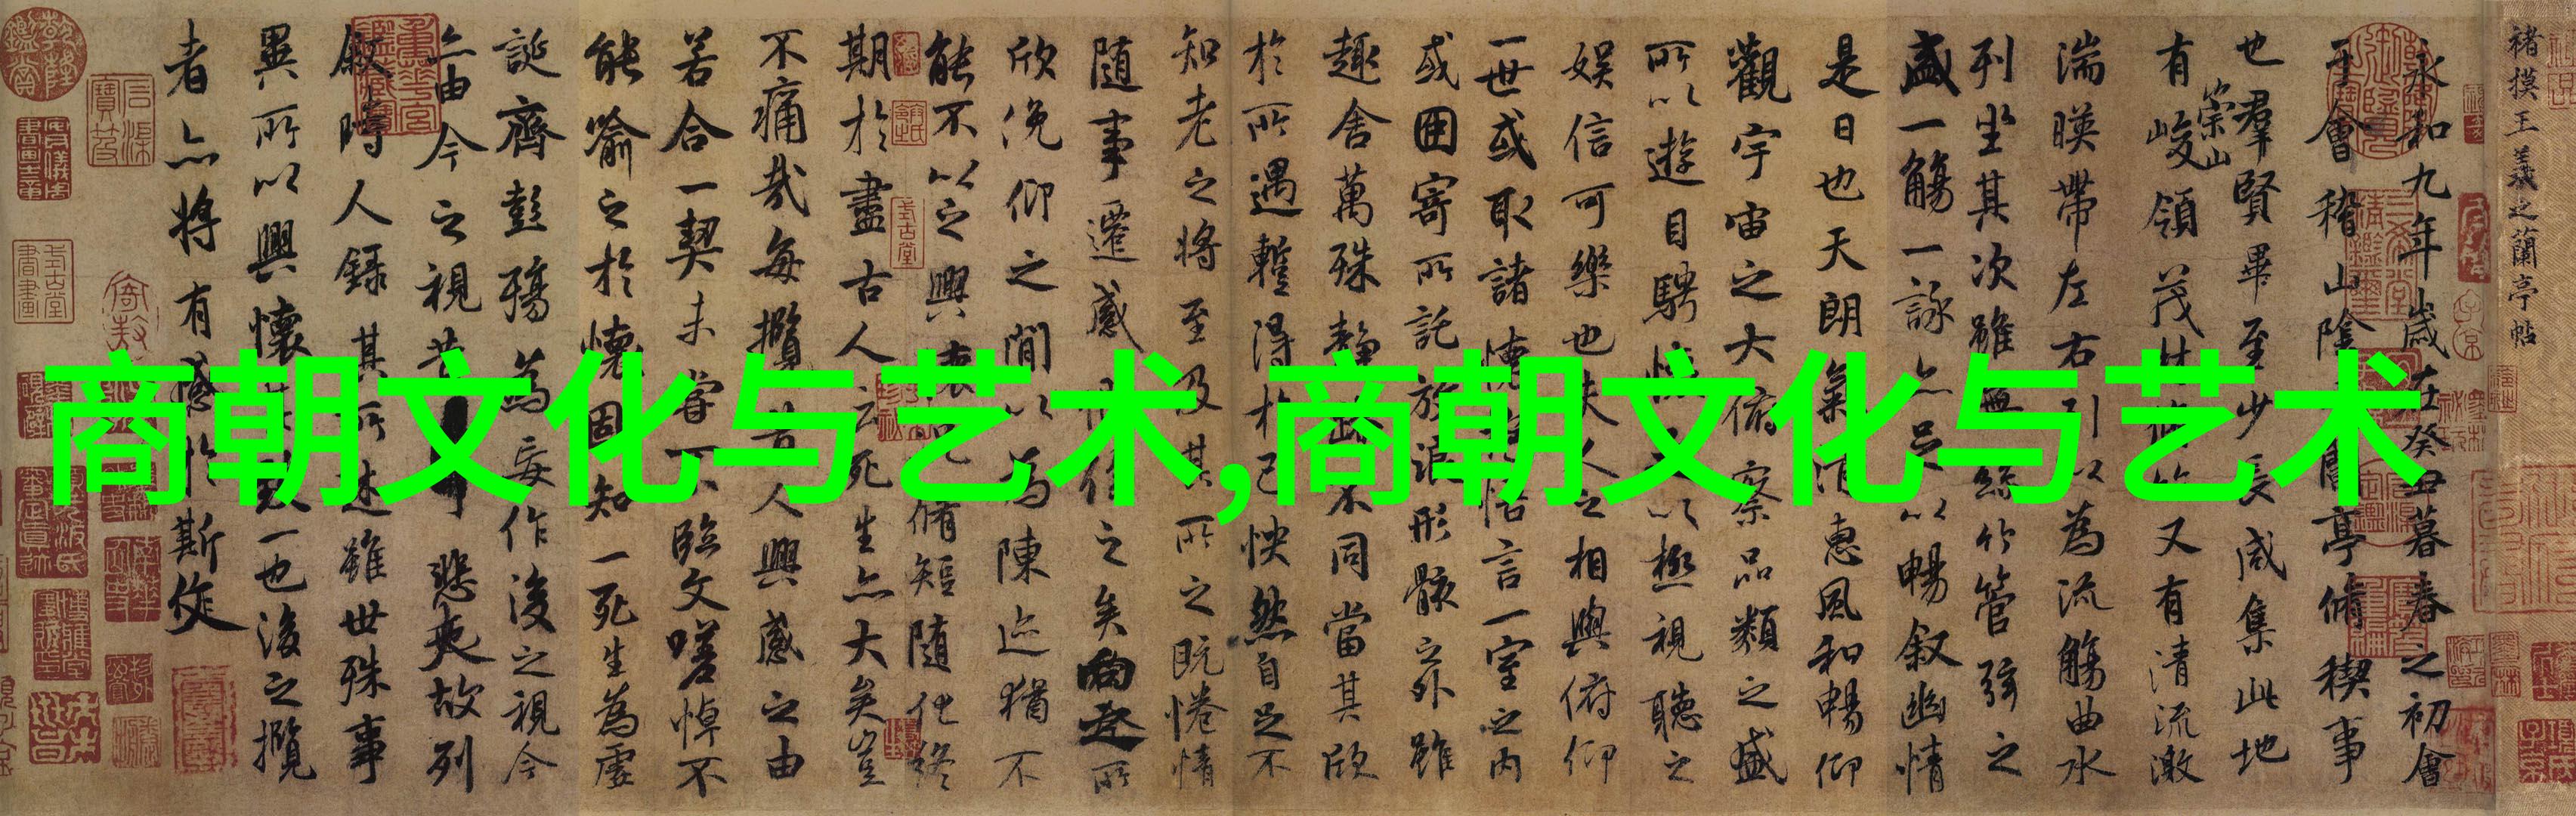 褚摸王羲之蘭亭帖
永和九年歲在癸丑暮春之初會
于會稽山陰之蘭亭脩禊事
也羣賢畢至少長咸集此地
有崇山峻領茂林脩竹又有清流激
湍暎帶左右引以為流觴曲水
列坐其次雖無絲竹管弦之
盛一觴一詠亦足以暢叙幽情
是日也天朗氣清惠風和暢仰
觀宇宙之大俯察品類之盛
所以遊目騁懷足以極視聽之
娛信可樂也夫人之相與俯仰
一世或取諸懷抱悟言一室之內
或因寄所託放浪形骸之外雖
趣舍萬殊靜躁不同當其欣
於所遇蹔得於己怏然自足不
知老之將至及其所之既惓情
隨事遷感慨係之矣向之所
欣俛仰之間以為陳迹猶不
能不以之興懷況脩短隨化終
期於盡古人云死生亦大矣豈
不痛哉每攬昔人興感之由
若合一契未嘗不臨文嗟悼不
能喻之於懷固知一死生為虛
誕齊彭殤為妄作後之視今
亦由今之視昔悲夫故列
叙時人錄其所述雖世殊事
異所以興懷其致一也後之攬
者亦將有感於斯文
商朝文化与艺术,商朝文化与艺术